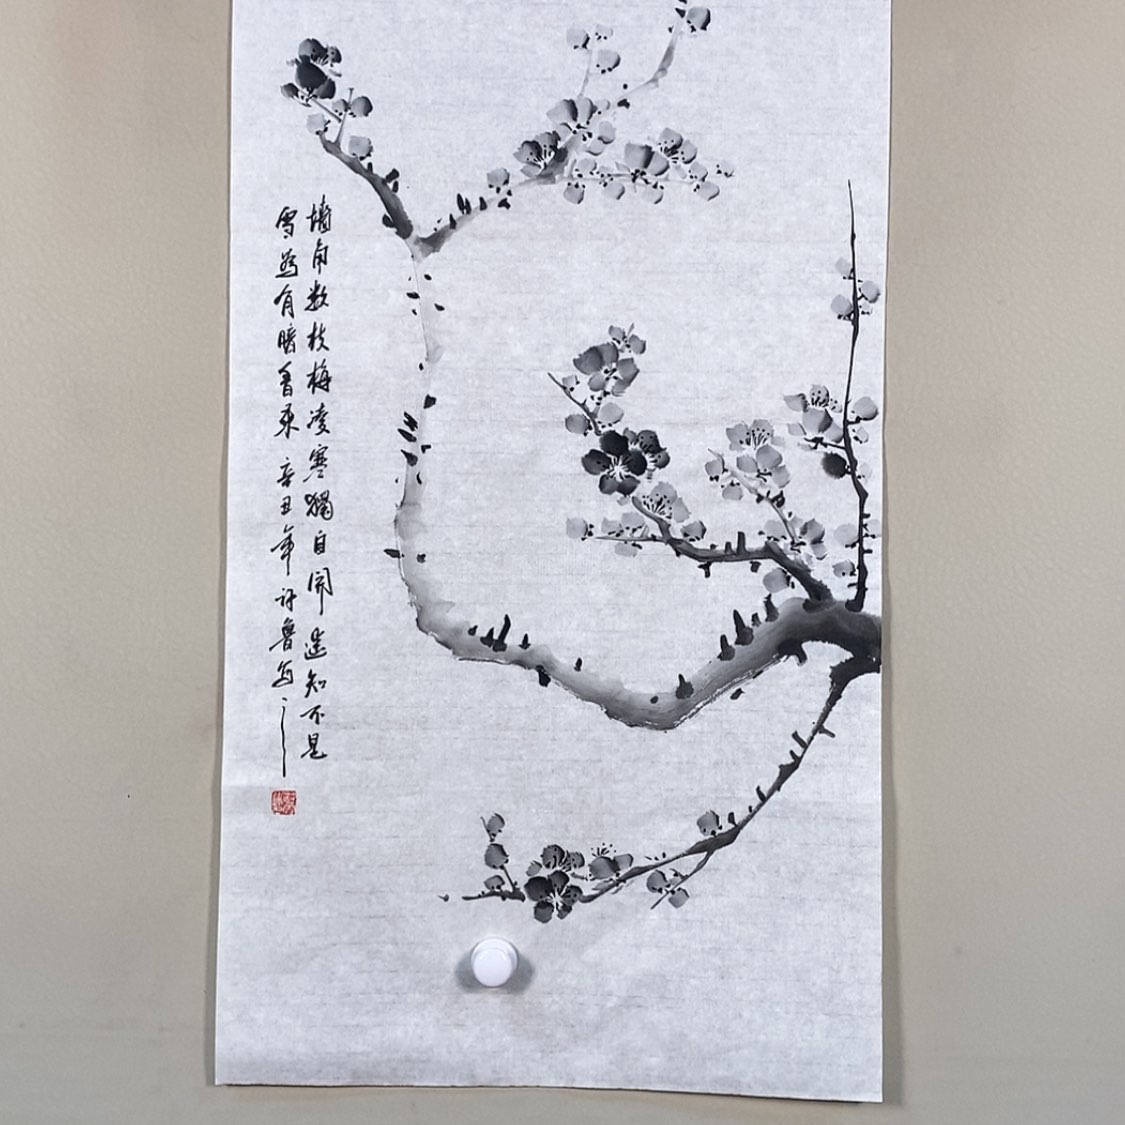 墙角数枝梅凌寒独自开遥知不是
雪为有暗香来 辛丑年许鲁写